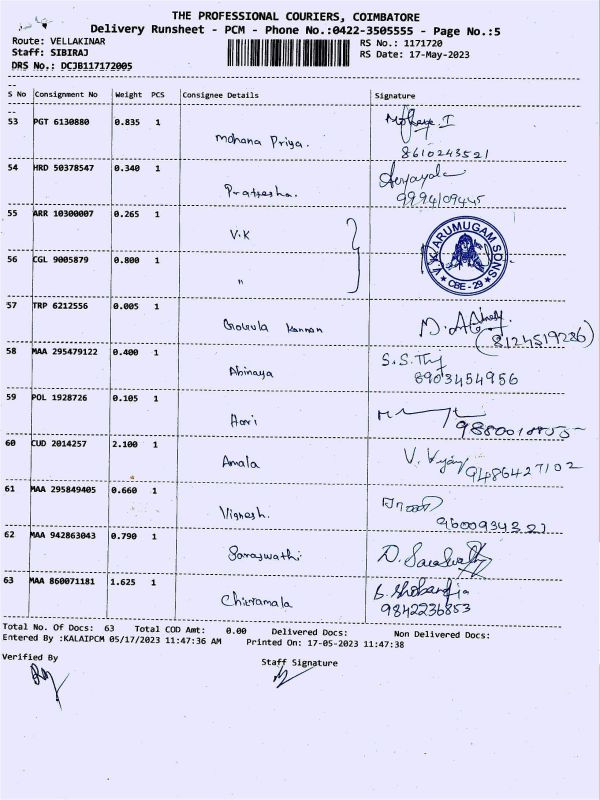 THE PROFESSIONAL COURIERS, COIMBATORE
Delivery Runsheet - PCM - Phone No.:0422-3505555 - Page No.:5
Route: VELLAKINAR RS No.: 1171720
Staff: SIBIRAJ RS Date: 17-May-2023
DRS No.: DCJB117172005
S No Consignment No Weight PCS Consignee Details Signature
53 PGT 6130880 0.835 1 Mohana Priya.
8610243521
54 HRD 50378547 0.340 1
9994109445
55 ARR 10300007 0.265 1 V.K
V.K. ARUMUGAM SONS
CBE - 29
56 CGL 9005879 0.800 1 "
57 TRP 6212556 0.005 1 Gokula Kannan
(8124519286)
58 MAA 295479122 0.400 1 Abinaya
8903454956
59 POL 1928726 0.105 1 Hari
60 CUD 2014257 2.100 1 Amala V. Vijay
9486427102
61 MAA 295849405 0.660 1 Vignesh.
9600934321
62 MAA 942863043 0.790 1 Saraswathi
63 MAA 860071181 1.625 1 Chitramala
9842236853
Total No. Of Docs: 63 Total COD Amt: 0.00 Delivered Docs: Non Delivered Docs:
Entered By :KALAIPCM 05/17/2023 11:47:36 AM Printed On: 17-05-2023 11:47:38
Verified By Staff Signature